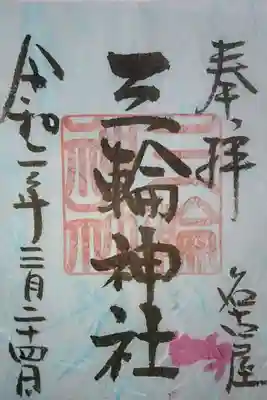 奉拝
名古屋
三輪神社
三輪神社
令和二年三月二十四日